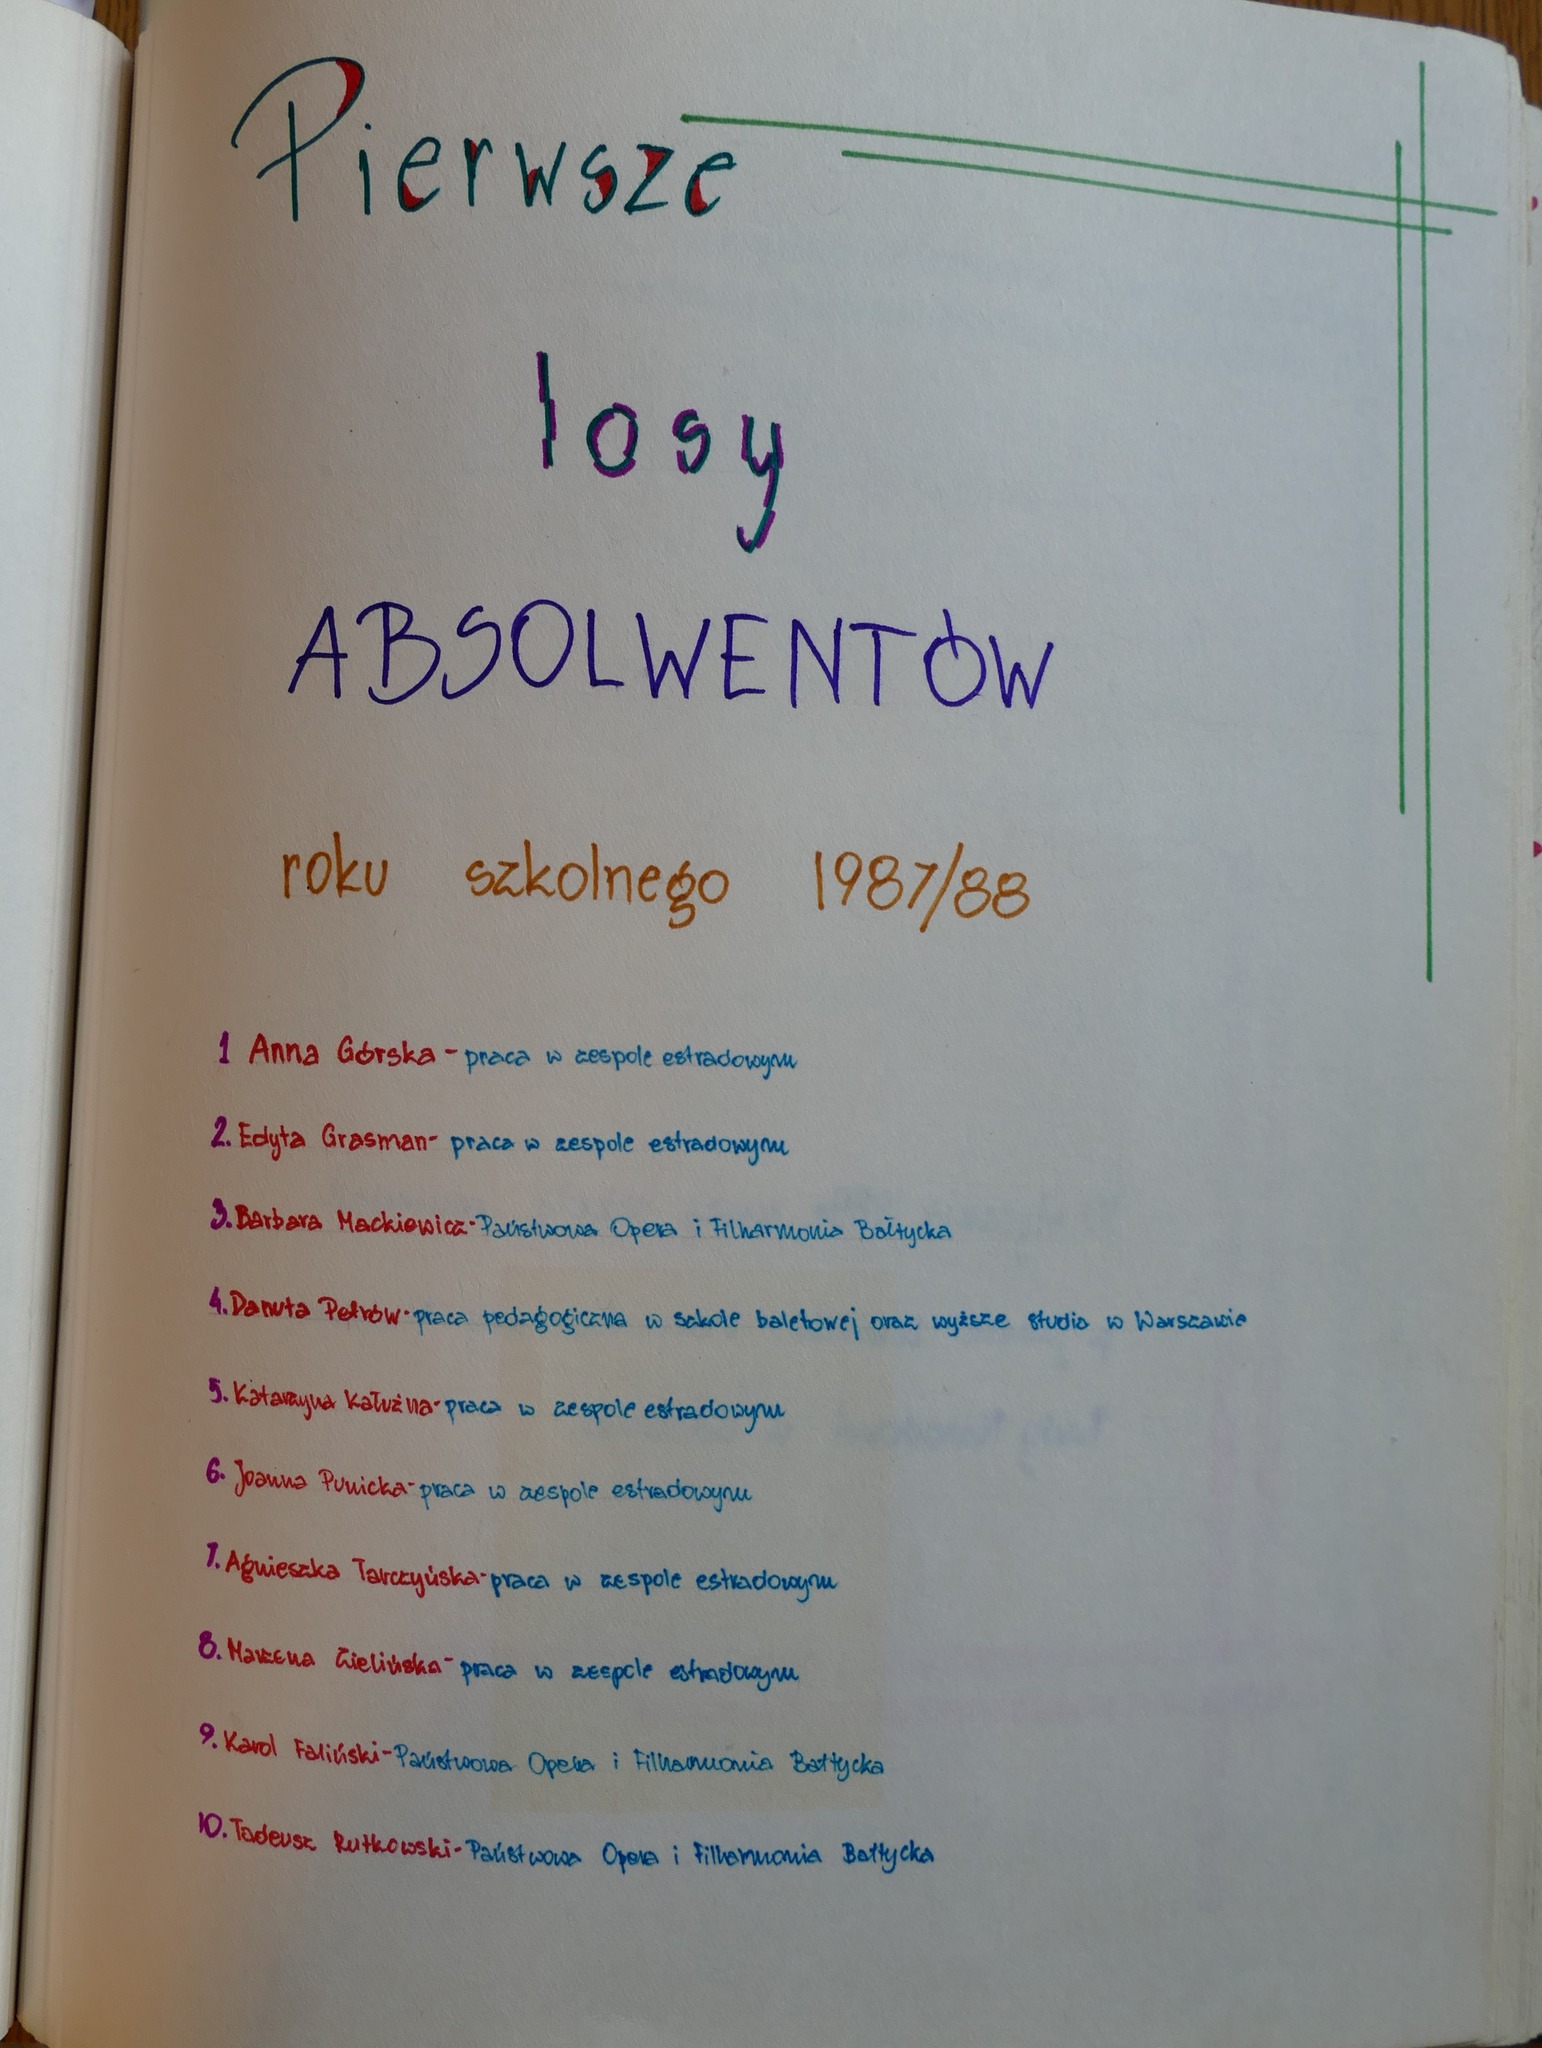 Pierwsze
losy
ABSOLWENTÓW
roku szkolnego 1987/88
1 Anna Górska - praca w zespole estradowym
2. Edyta Grasman - praca w zespole estradowym
3. Barbara Mackiewicz - Państwowa Opera i Filharmonia Bałtycka
4. Danuta Petrów - praca pedagogiczna w szkole baletowej oraz wyższe studia w Warszawie
5. Katarzyna Kałużna - praca w zespole estradowym
6. Joanna Punicka - praca w zespole estradowym
7. Agnieszka Tarczyńska - praca w zespole estradowym
8. Marzena Zielińska - praca w zespole estradowym
9. Karol Faliński - Państwowa Opera i Filharmonia Bałtycka
10. Tadeusz Rutkowski - Państwowa Opera i Filharmonia Bałtycka